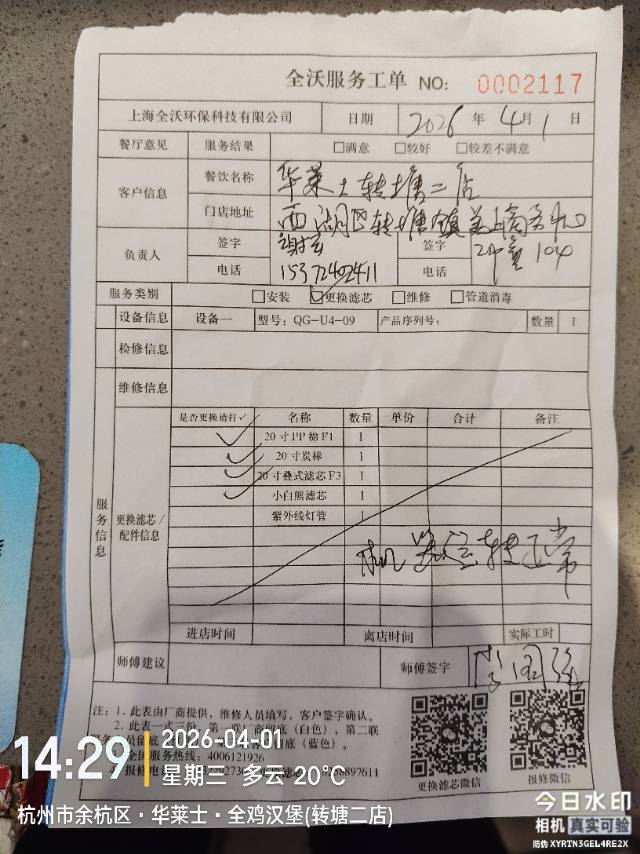 全沃服务工单 NO: 0002117
上海全沃环保科技有限公司 日期 2026 年 4月 1 日
餐厅意见 服务结果 □满意 □较好 □较差不满意
客户信息 餐饮名称 华莱士转塘二店
门店地址 西湖区转塘镇美上商务中心
负责人 签字 谢宏 签字 2中童 104
电话 15372402411 电话
服务类别 □安装 ☑更换滤芯 □维修 □管道消毒
设备信息 设备一 型号: QG-U4-09 产品序列号: 数量 1
检修信息
维修信息
服务信息
更换滤芯/配件信息
是否更换请打✓ 名称 数量 单价 合计 备注
✓ 20寸PP棉F1 1
✓ 20寸炭棒 1
✓ 20寸叠式滤芯F3 1
✓ 小白熊滤芯 1
紫外线灯管 1
机器运转正常
进店时间 离店时间 实际工时
师傅建议 师傅签字 李国强
注: 1、此表由厂商提供, 维修人员填写, 客户签字确认。
2、此表一式三份, 第一联厂商留底(白色), 第二联
留底(蓝色)。
全国服务热线: 4006121926
报修电
更换滤芯微信 报修微信
14:29
2026-04-01
星期三 多云 20℃
杭州市余杭区·华莱士·全鸡汉堡(转塘二店)
今日水印
相机 真实可验
防伪 XYRTN3GEL4RE2X